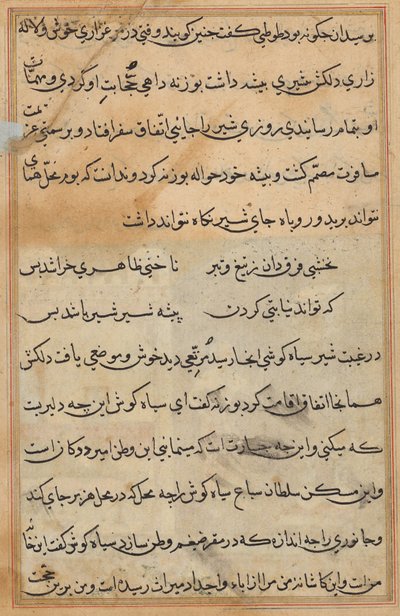 پرسیدان چگونه بود طوطی گفت چنین گویند وقتی در مرغزاری خوش و لاله
زاری دلکش شیری بیشه داشت بوزنه داهی حجابت او کردی و مهمات
او بتمام رسانیدی روزی شیر را جایی اتفاق سفر افتاد و بر سمتی عزیمت
مسافرت مصمم گشت و بیشه خود حواله بوزنه کرد و ندانست که بوم محل همای
نتواند برید و روباه جای شیر نگاه نتواند داشت
نخشبی فرق دان ز تیغ و تبر ناخنی ظاهری خراشد بس
که تواند نیابتی کردن بیشه شیر شیر باشد بس
در غیبت شیر سیاه گوشی انجا رسید مرتعی دید خوش و موضعی یافت دلکش
همانجا اتفاق اقامت کرد بوزنه گفت ای سیاه گوش این چه دلیریست
که میکنی و این چه جسارت است که مینمایی این وطن امیر ددکان است
و این مسکن سلطان سباع سیاه گوش را چه محل که در محل هزبر جای کند
و جانوری را چه اندازه که در مقر ضیغم وطن سازد سیاه گوش گفت این خانه
من است و این کاشانه من مرا از اباء و اجداد میراث رسیده است و من برین حجت